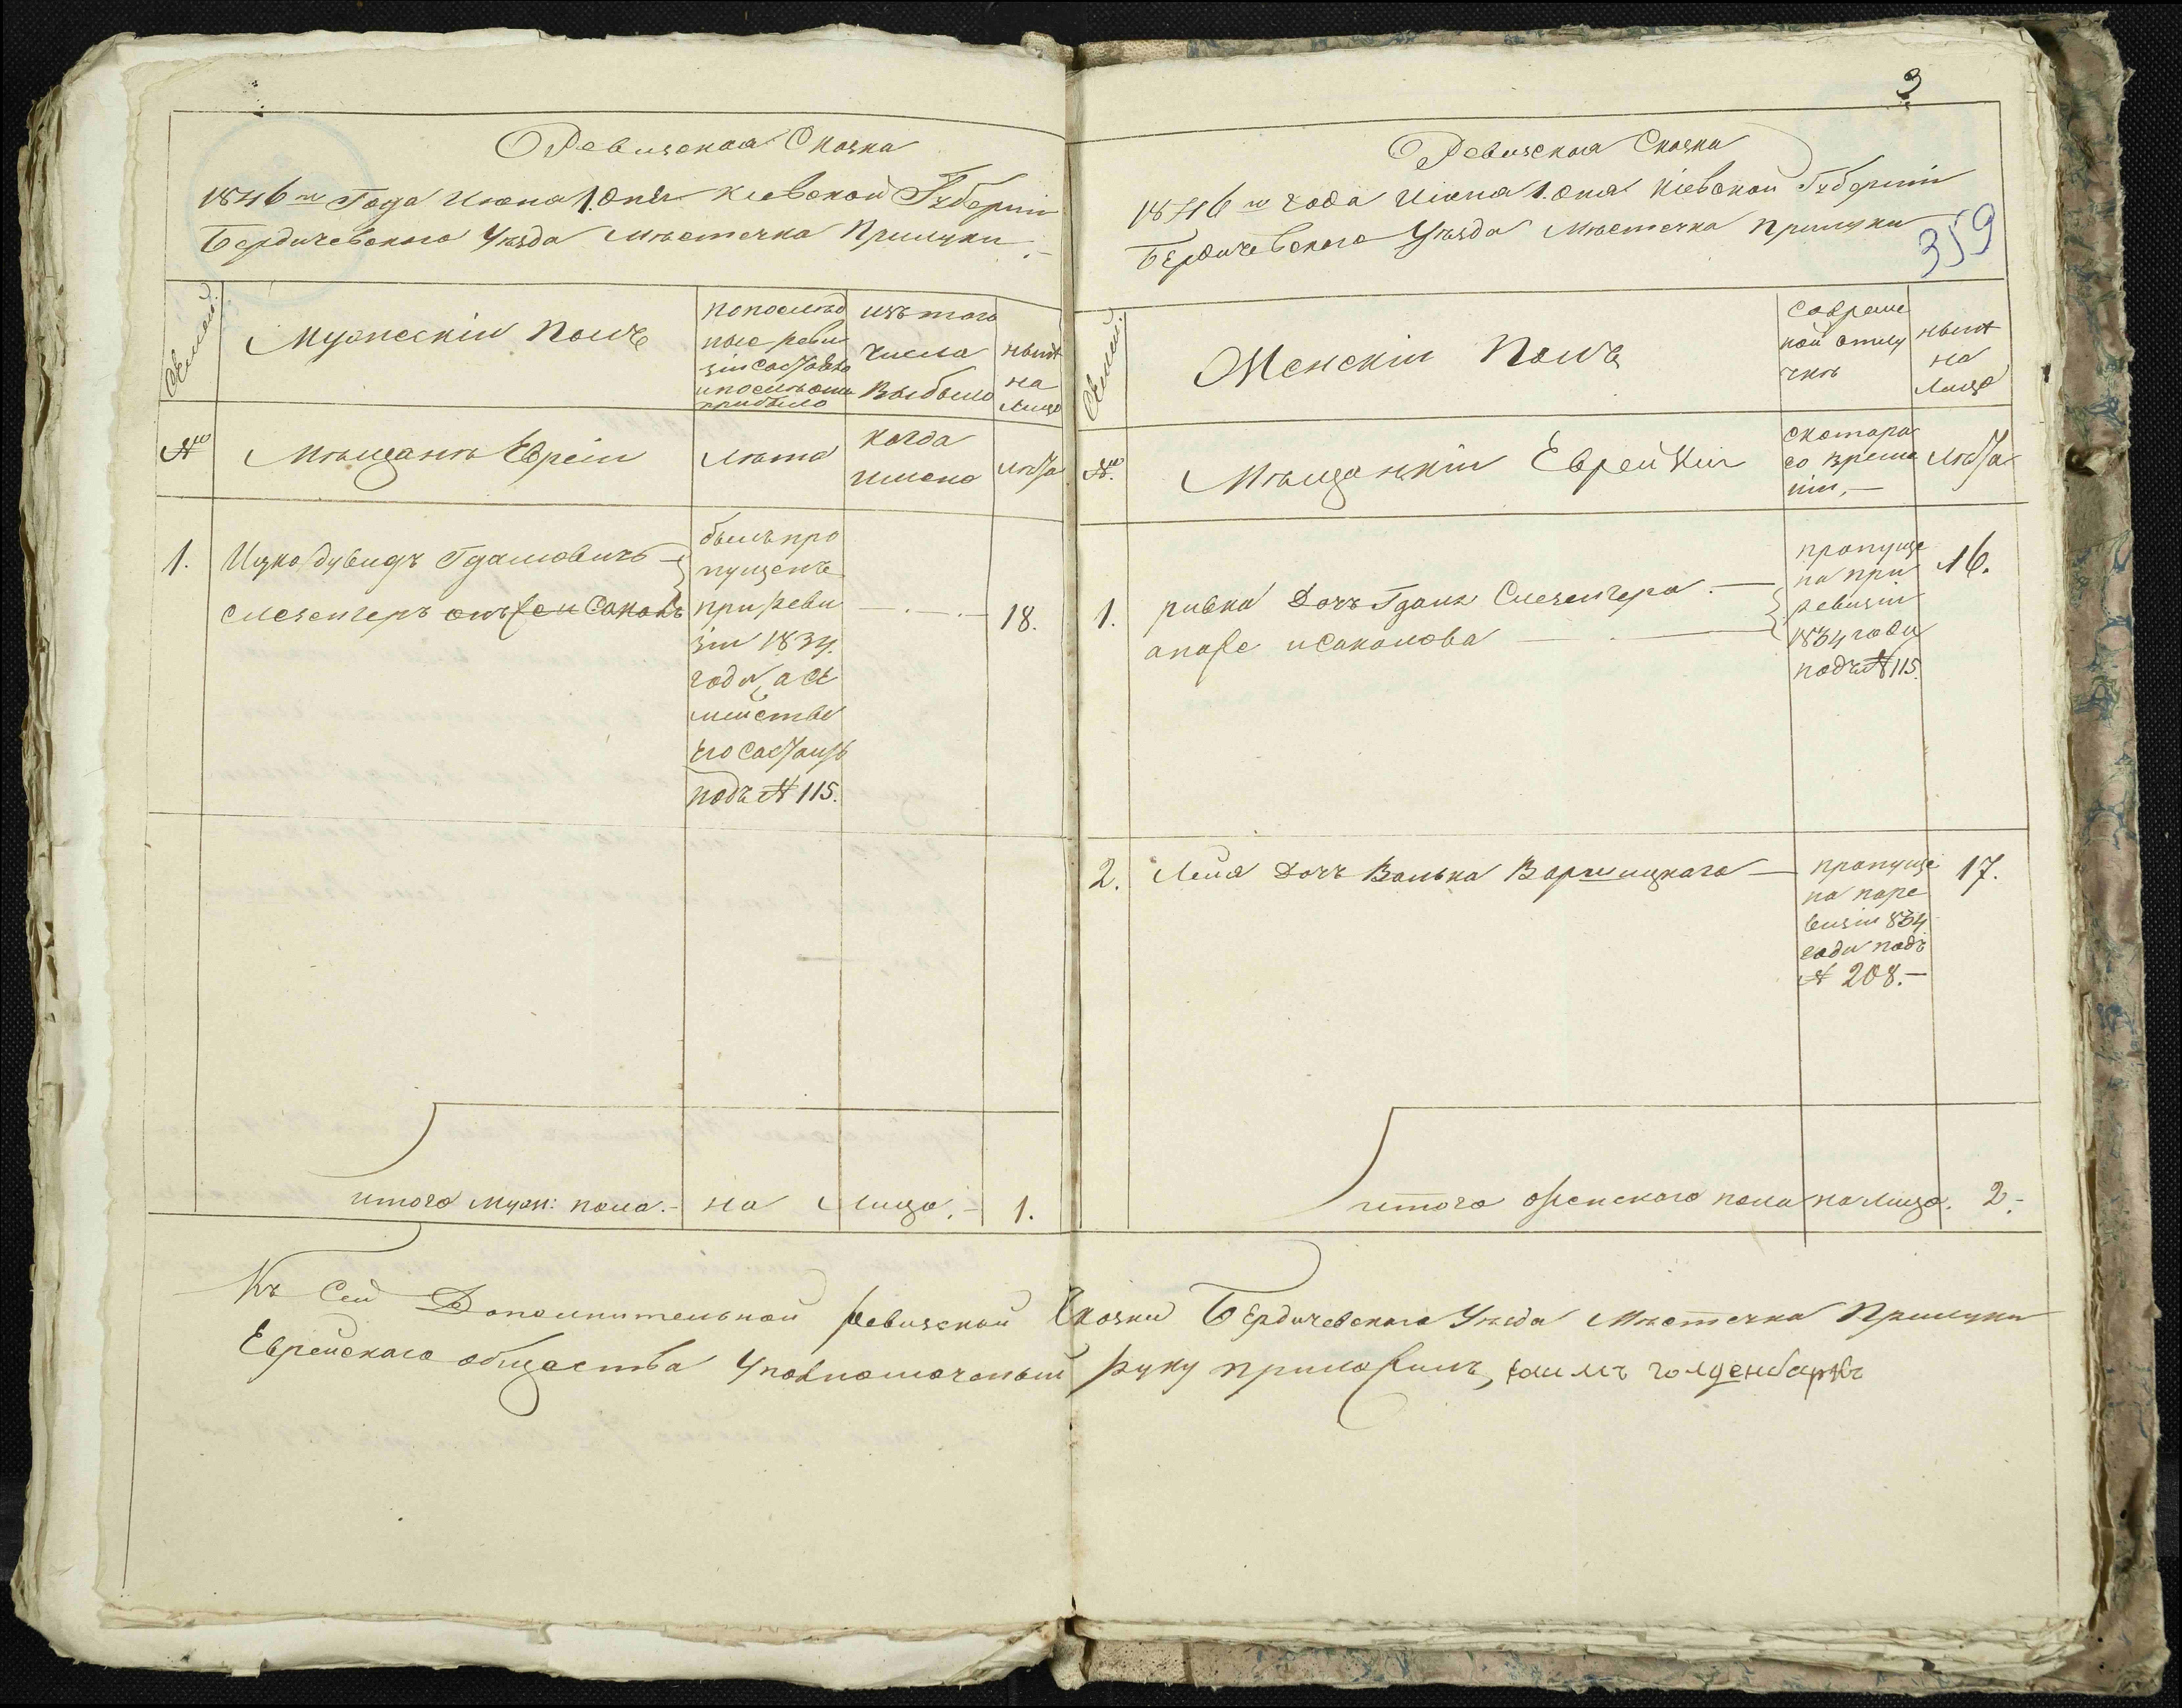 Ревизская Сказка
1846го Года Июня 1. дня Киевской Губерніи
Бердичевского Уѣзда Мѣстечка Прилуки.
Семей.
Мужескій Полъ
попослѣд
ное реви
зіи состояло
ипослѣ оной
прибыло
изъ того
числа
выбыло
нынѣ
на
лицо
№
Мѣщанъ Евреіи
Лѣта
когда
имено
лѣта
1.
Ицко дувидъ Гдалювичъ
Слезенгеръ онъ же и Соколъ
былъ про
пущенъ
при реви
зіи 1834.
году, а се
мейство
его состоитъ
подъ № 115.
18.
итого муж: пола. на лицо. 1.
3
Ревизская Сказка
1846го года Июня 1. дня Кіевской Губерніи
Бердичевского Уѣзда Мѣстечка Прилуки
359
Семей.
Женскій Полъ
Совреме
ной отлу
чкѣ
нынѣ
на
лицо
№.
Мѣщанкіи Еврейкіи
скотора
го време
ніи,
лѣта
1.
ривка Дочъ Гдаля Слезенгера.
онаже исоколова
пропуще
на при
ревизіи
1834 году
подъ № 115.
16.
2. Лейа Дочъ Волька Варшицкаго
пропуще
на поре
визіи 834
году подъ
№ 208.
17.
итого женского пола на лицо. 2.
Къ Сей Дополнительной ревизской Сказки Бердичевского Уѣзда Мѣстечка Прилуки
Еврейскаго общества Уповномоченый руку приложилъ, хаимъ голденбаркъ